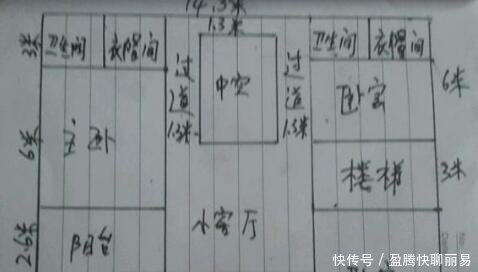 14.3米
1.3米
3米
卫生间
衣帽间
过道
1.3米
中空
过道
1.3米
卫生间
衣帽间
卧室
6米
6米
主卧
楼梯
3米
2.6米
阳台
小客厅
快传号 / 盈腾快聊丽易